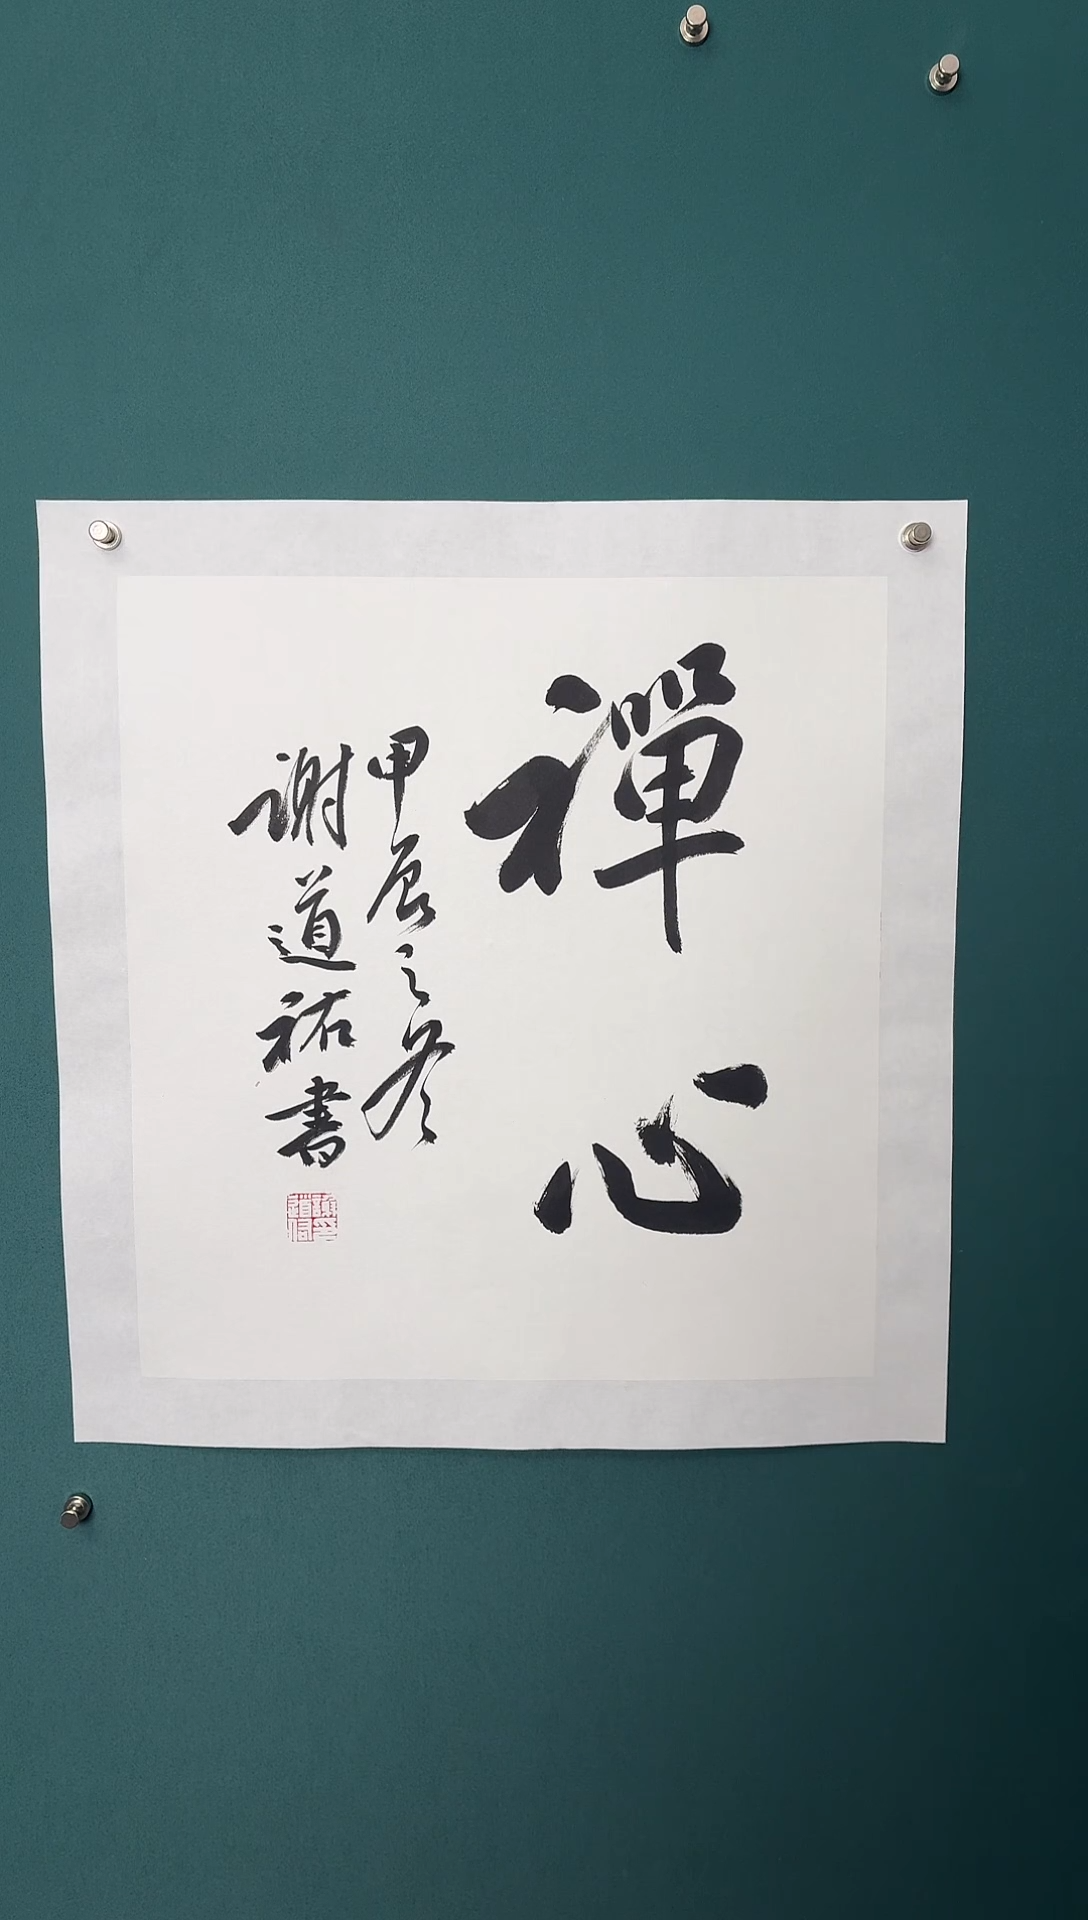 禪心
甲辰之冬
谢道祐書